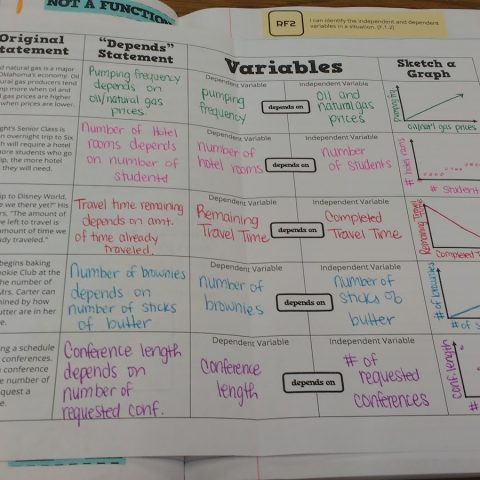 NOT A FUNCTION
RF2
I can identify the independent and dependent
variables in a situation. (F.1.2)
Original
Statement
"Depends"
Statement
Variables
Sketch a
Graph
natural gas is a major
Oklahoma's economy. Oil
ural gas producers tend
mp more when oil and
gas prices are higher
when prices are lower.
Pumping frequency
depends on
oil/natural gas
prices.
Dependent Variable
pumping
frequency
depends on
Independent Variable
oil and
natural gas
prices
pumping
oil/nat'l gas prices
ght's Senior Class is
n overnight trip to Six
h will require a hotel
more students who go
ip, the more hotel
they will need.
Number of Hotel
rooms depends
on number of
students
Dependent Variable
number of
hotel rooms
depends on
Independent Variable
number
of students
# hotel rooms
# student
ip to Disney World,
e we there yet?" His
rs, "The amount of
ve left to travel is
amount of time we
ady traveled."
Travel time remaining
depends on amt.
of time already
traveled.
Dependent Variable
Remaining
Travel Time
depends on
Independent Variable
Completed
Travel Time
Remaining Travel
Completed T
begins baking
ookie Club at the
he number of
Mrs. Carter can
mined by how
utter are in her
e.
Number of brownies
depends on
number of sticks
of butter
Dependent Variable
number of
brownies
depends on
Independent Variable
Number of
sticks of
butter
# of brownies
# of s
ng a schedule
conferences.
conference
e number of
quest a
e.
Conference length
depends on
number of
requested conf.
Dependent Variable
Conference
length
depends on
Independent Variable
# of
requested
conferences
conf. length
# o